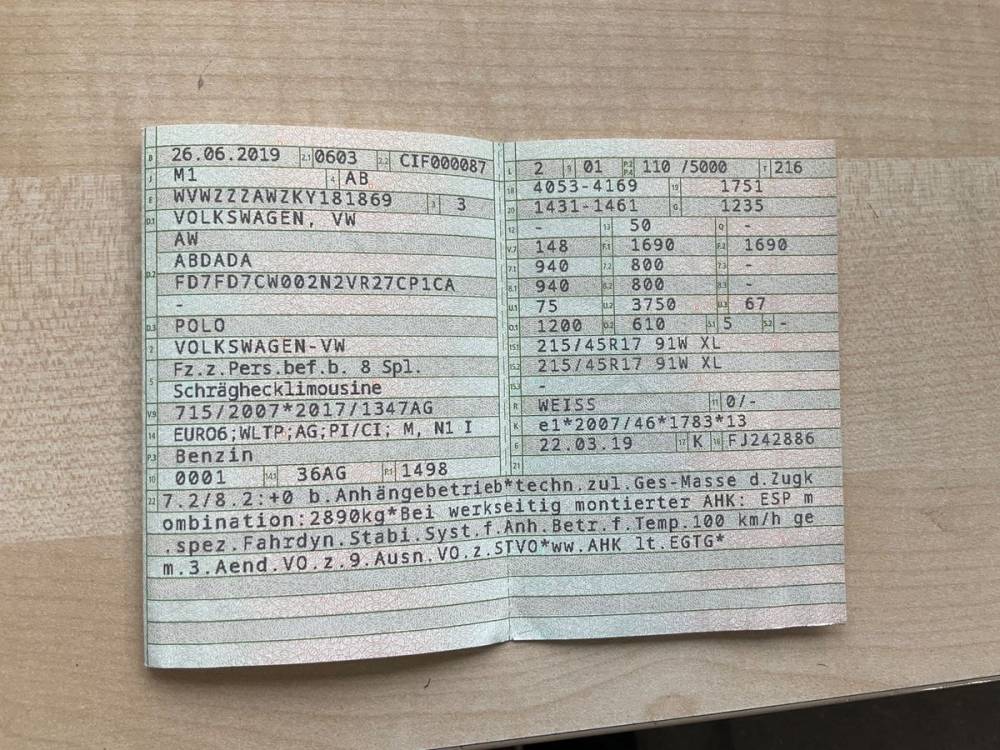 B 26.06.2019 2.1 0603 2.2 CIF000087
J M1 4 AB
E WVWZZZAWZKY181869 3 3
D.1 VOLKSWAGEN, VW
AW
ABDADA
D.2 FD7FD7CW002N2VR27CP1CA
-
D.3 POLO
2 VOLKSWAGEN-VW
5 Fz.z.Pers.bef.b. 8 Spl.
Schrägheckl​imousine
V.9 715/2007*2017/1347AG
14 EURO6;WLTP;AG;PI/CI; M, N1 I
P.3 Benzin
10 0001 14.1 36AG P.1 1498
L 2 9 01 P.2 P.4 110 /5000 T 216
18 4053-4169 19 1751
20 1431-1461 G 1235
12 - 13 50 Q -
V.7 148 F.1 1690 F.2 1690
7.1 940 7.2 800 7.3 -
8.1 940 8.2 800 8.3 -
U.1 75 U.2 3750 U.3 67
O.1 1200 O.2 610 S.1 5 S.2 -
15.1 215/45R17 91W XL
15.2 215/45R17 91W XL
15.3 -
R WEISS 11 0/-
K e1*2007/46*1783*13
6 22.03.19 17 K 16 FJ242886
21
22 7.2/8.2:+0 b.Anhängebetrieb*techn.zul.Ges-Masse d.Zugk
ombination:2890kg*Bei werkseitig montierter AHK: ESP m
.spez.Fahrdyn.Stabi.Syst.f.Anh.Betr.f.Temp.100 km/h ge
m.3.Aend.VO.z.9.Ausn.VO.z.STVO*ww.AHK lt.EGTG*